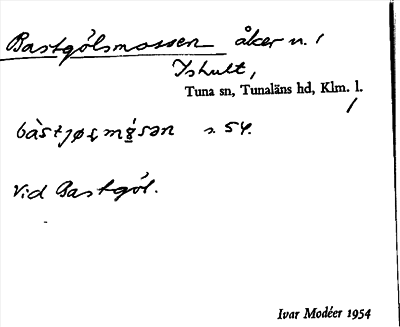 Bastgölsmossen åker n. /
Ishult,
Tuna sn, Tunaläns hd, Klm. l.
/
s. 54.
Vid Bastgöl.
Ivar Modéer 1954